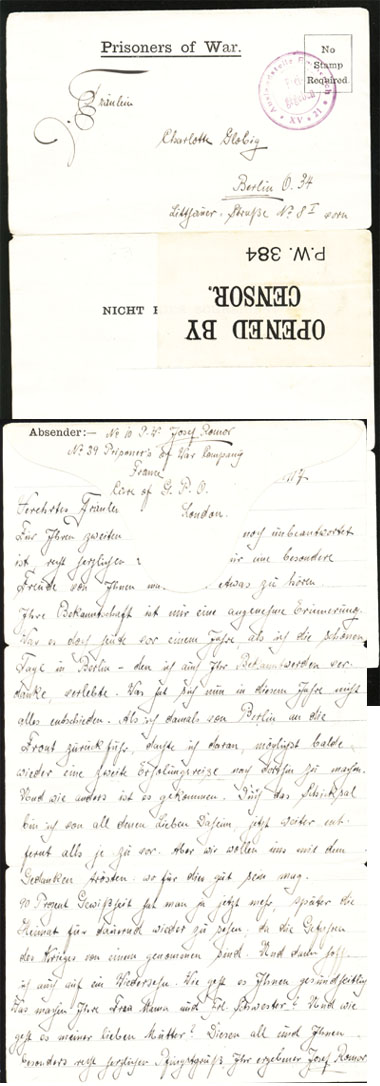 Prisoners of War.
No
Stamp
Required
XV 21
Fräulein
Charlotte Globig
Berlin O. 34
Litthauer-Straße No 8 I vorn
P.W. 384
OPENED BY
CENSOR.
NICHT
Absender:— No 10 P.W. Josef Romor
No 39 Prisoner's of War Company
France
Care of G. P. O.
London.
Für Ihren zweiten noch unbeantwortet
ist recht herzlichen eine besondere
Freude von Ihnen etwas zu hören.
Ihre Bekanntschaft ist mir eine angenehme Erinnerung.
War es doch heute vor einem Jahre als ich die schönen
Tage in Berlin – den ich auch Ihr Bekanntwerden ver-
danke, verlebte. Was hat sich nun in diesem Jahre nicht
alles entschieden. Als ich damals von Berlin an die
Front zurückfuhr, dachte ich daran, möglichst balde
wieder eine zweite Erholungsreise nach dorthin zu machen.
Und wie anders ist es gekommen. Durch das Schicksal
bin ich von all denen Lieben Daheim, jetzt weiter ent-
fernt als je zu vor. Aber wir wollen uns mit dem
Gedanken trösten: wo für dies gut sein mag.
90 Prozent Gewißheit hat man ja jetzt mehr, später die
Heimat für dauernd wieder zu sehen, da die Gefahren
des Krieges von einem genommen sind. Und dann hoffe
ich auch auf ein Wiedersehn. Wie geht es Ihnen gesundheitlich
Was machen Ihre Frau Mama und Frl. Schwester? Und wie
geht es meiner lieben Mutter? Diesen all und Ihnen
besonders recht herzlichen Pfingstgruß. Ihr ergebener Josef Romor